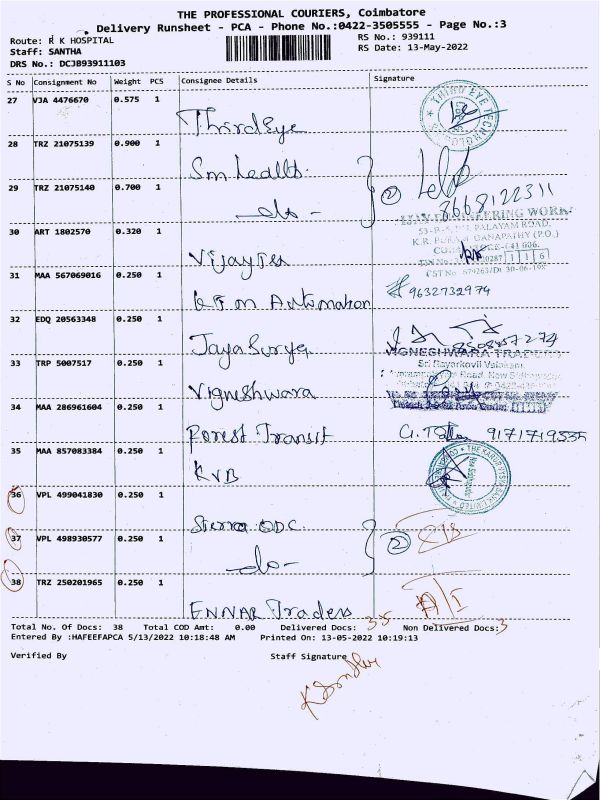 THE PROFESSIONAL COURIERS, Coimbatore
Delivery Runsheet - PCA - Phone No.:0422-3505555 - Page No.:3
Route: R K HOSPITAL
RS No.: 939111
Staff: SANTHA
RS Date: 13-May-2022
DRS No.: DCJB93911103
S No Consignment No Weight PCS Consignee Details Signature
27 VJA 4476670 0.575 1
ThirdEye
28 TRZ 21075139 0.900 1
Sm Lealts
29 TRZ 21075140 0.700 1
2
8668122311
-do-
30 ART 1802570 0.320 1
Vijay Tex
31 MAA 567069016 0.250 1
9632732974
Automation
32 EDQ 20563348 0.250 1
Jaya Surya
33 TRP 5007517 0.250 1
VIGNESHWARA TRADERS
Sri Rayarkovil Valagam,
Vigneshwara
34 MAA 286961604 0.250 1
Forest Transit
35 MAA 857083384 0.250 1
KVB
36 VPL 499041830 0.250 1
Sierra ODC
37 VPL 498930577 0.250 1
2
-do-
38 TRZ 250201965 0.250 1
ENNAR Traders
Total No. Of Docs: 38 Total COD Amt: 0.00 Delivered Docs: 35 Non Delivered Docs: 3
Entered By :HAFEEFAPCA 5/13/2022 10:18:48 AM Printed On: 13-05-2022 10:19:13
Verified By Staff Signature